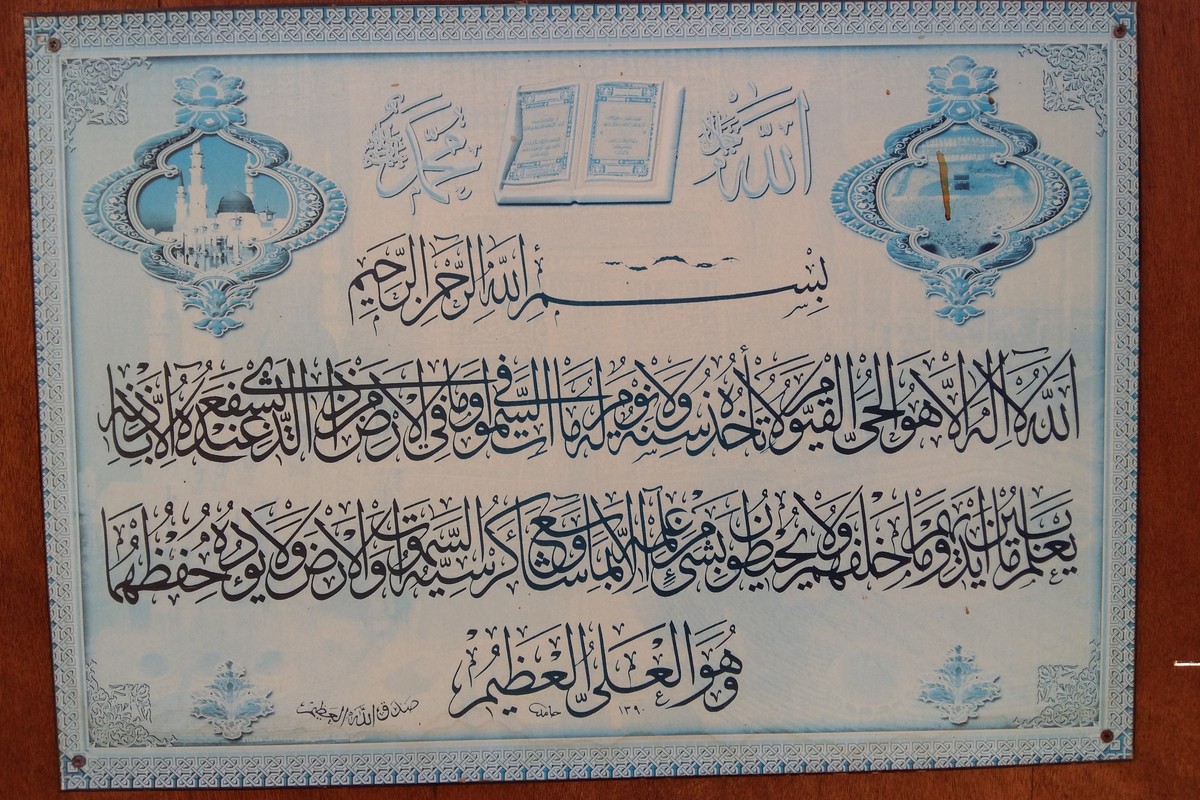 الله جل جلاله
محمد
بسم الله الرحمن الرحيم
الله لا اله الا هو الحي القيوم لا تأخذه سنة ولا نوم له ما في السموات وما في الارض من ذا الذي يشفع عنده الا باذنه
يعلم ما بين ايديهم وما خلفهم ولا يحيطون بشيء من علمه الا بما شاء وسع كرسيه السموات والارض ولا يؤده حفظهما
وهو العلي العظيم
١٣٩٠
صدق الله العظيم